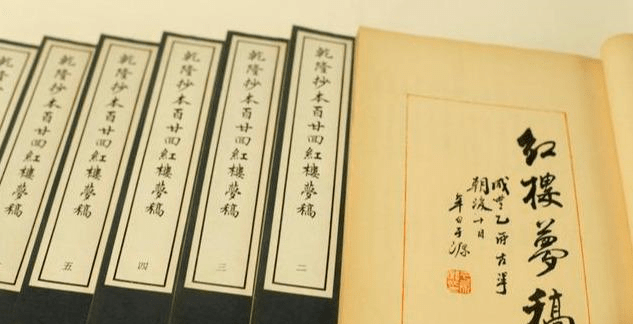 紅樓夢稿
咸豐乙卯古華
朝後十日
辛白于源
乾隆抄本百廿回紅樓夢稿
二
乾隆抄本百廿回紅樓夢稿
三
乾隆抄本百廿回紅樓夢稿
四
乾隆抄本百廿回紅樓夢稿
五
乾隆抄本百廿回紅樓夢稿